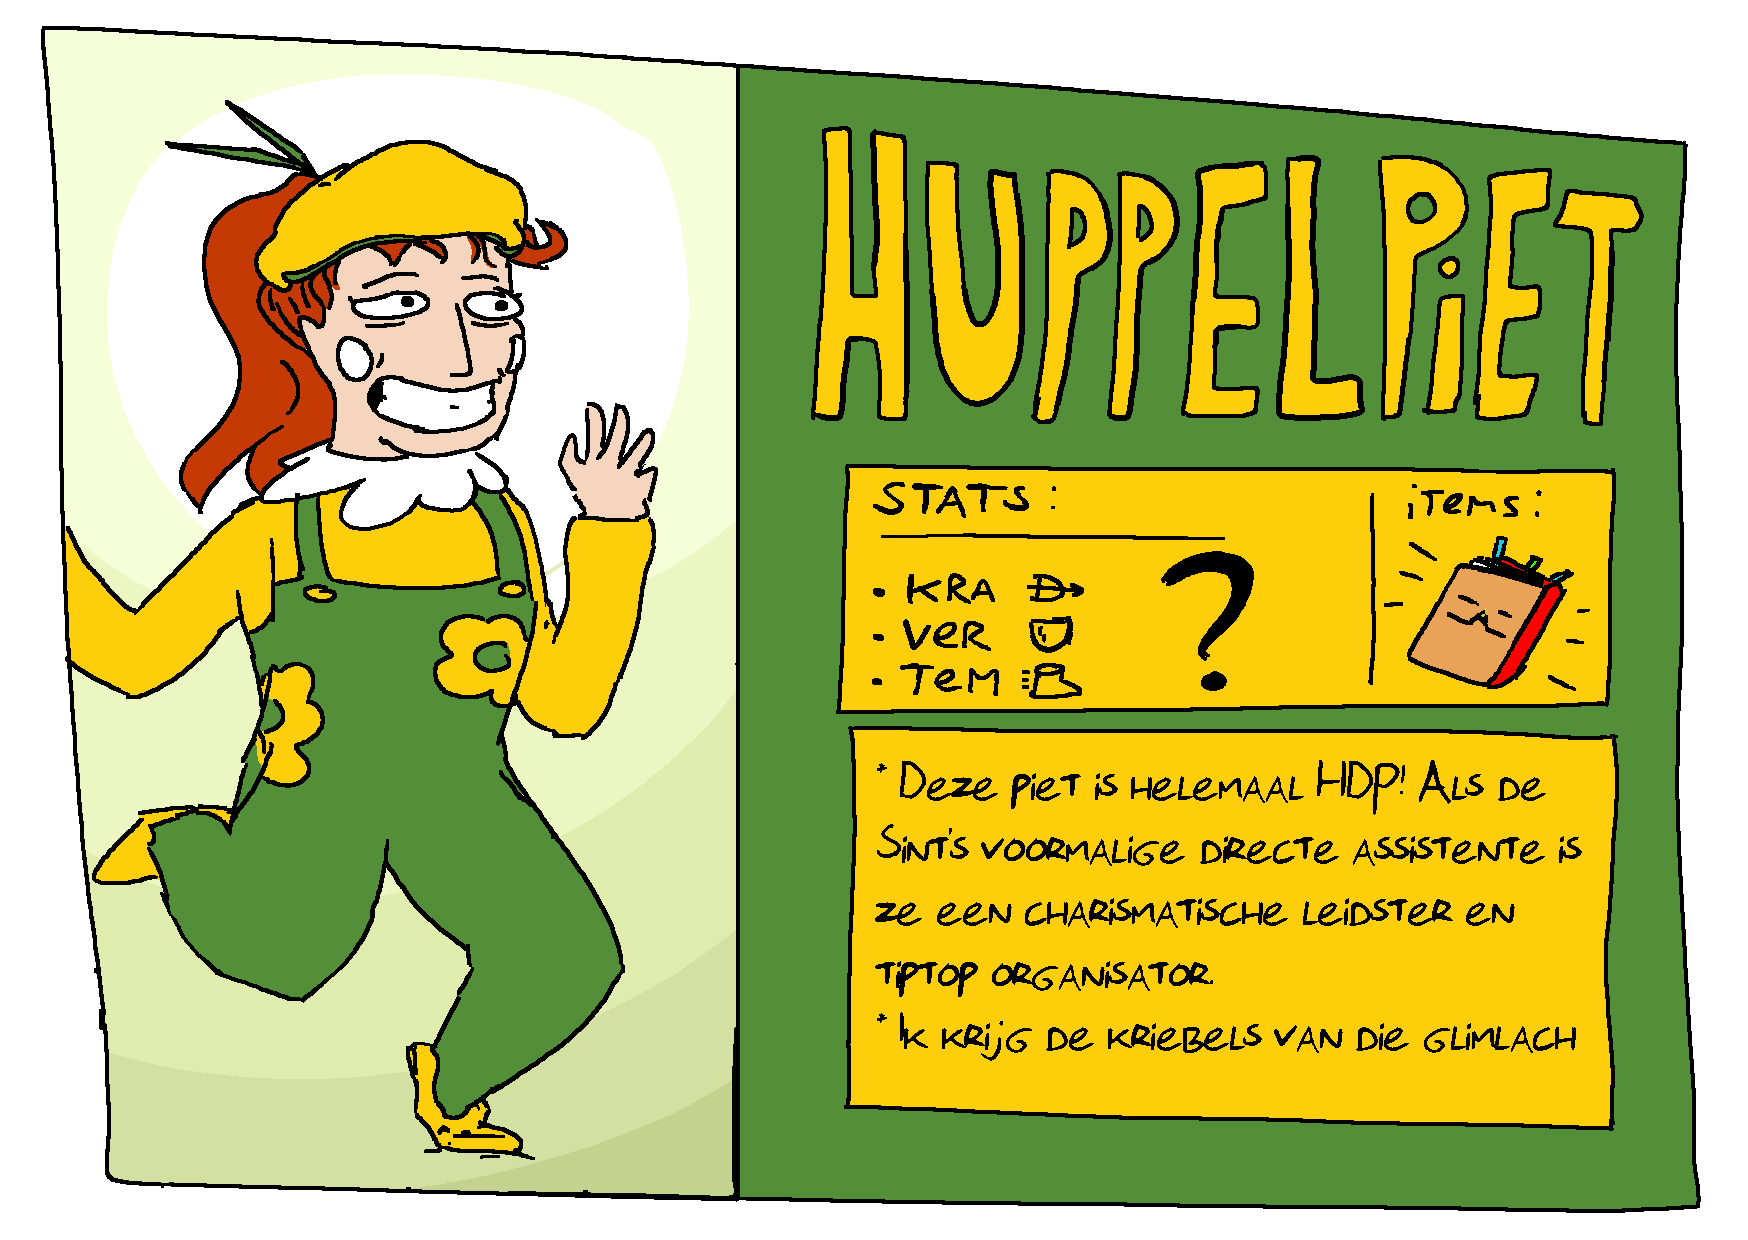 HUPPELPiET
STATS:
iTeMS:
• KRA
• VeR
• TeM
?
* Deze piet is helemaal HDP! Als de
Sint's voormalige directe assistente is
ze een charismatische leidster en
tiptop organisator.
* Ik krijg de kriebels van die glimlach